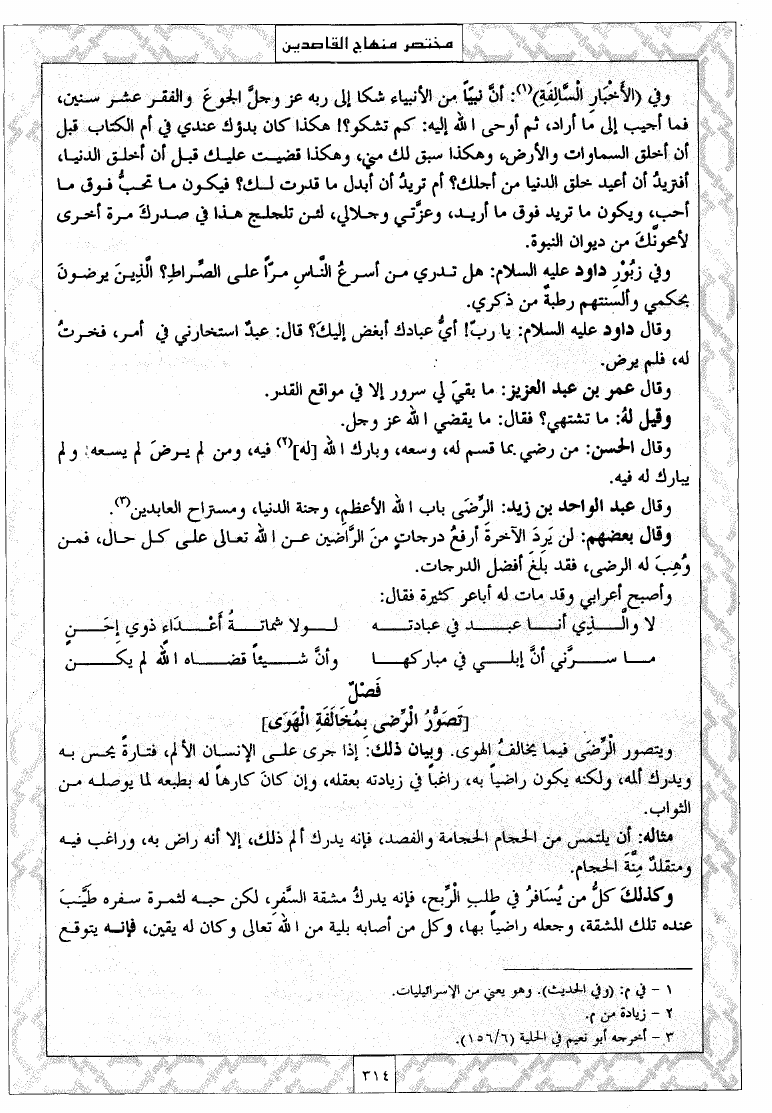 مختصر منهاج القاصدين
وفي (الأَخْبَارِ السَّالِفَةِ)(١): أنَّ نبيّاً من الأنبياء شكا إلى ربه عز وجلَّ الجوعَ والفقر عشر سنين،
فما أجيب إلى ما أراد، ثم أوحى الله إليه: كم تشكو؟! هكذا كان بدؤك عندي في أم الكتاب قبل
أن أخلق السماوات والأرض، وهكذا سبق لك مني، وهكذا قضيت عليك قبل أن أخلق الدنيا،
أفتريدُ أن أعيد خلق الدنيا من أجلك؟ أم تريدُ أن أبدل ما قدرت لك؟ فيكون ما تحبُّ فوق ما
أحب، ويكون ما تريد فوق ما أريد، وعزَّتي وجلالي، لئن تلجلج هذا في صدركَ مرة أخرى
لأمحونَّكَ من ديوان النبوة.
وفي زَبُوْرِ داود عليه السلام: هل تدري من أسرعُ النَّاسِ مرّاً على الصِّراطِ؟ الَّذِينَ يرضونَ
بحكمي وألسنتهم رطبةٌ من ذكري.
وقال داود عليه السلام: يا ربِّ! أيُّ عبادك أبغض إليكَ؟ قال: عبدٌ استخارني في أمر، فخرتُ
له، فلم يرض.
وقال عمر بن عبد العزيز: ما بقيَ لي سرور إلا في مواقع القدر.
وقيل لهُ: ما تشتهي؟ فقال: ما يقضي الله عز وجل.
وقال الحسن: من رضي بما قسم له، وسعه، وبارك الله [له](٢) فيه، ومن لم يرضَ لم يسعه، ولم
يبارك له فيه.
وقال عبد الواحد بن زيد: الرِّضَى باب الله الأعظم، وجنة الدنيا، ومستراح العابدين(٣).
وقال بعضهم: لن يَرِدَ الآخرةَ أرفعُ درجاتٍ منَ الرَّاضين عن الله تعالى على كل حال، فمن
وُهِبَ له الرضى، فقد بلَغَ أفضل الدرجات.
وأصبح أعرابي وقد مات له أباعر كثيرة فقال:
لا والَّذِي أنا عبد في عبادته لولا شماتةُ أعْدَاء ذوي إحَنٍ
ما سرَّني أنَّ إبلي في مباركها وأنَّ شيئاً قضاه الله لم يكن
فَصْلٌ
[تَصَوُّرُ الْرِّضى بِمُخَالَفَةِ الْهَوَى]
ويتصور الْرِّضَى فيما يخالفُ الهوى. وبيان ذلك: إذا جرى على الإنسان الألم، فتارةً يحس به
ويدرك ألمه، ولكنه يكون راضياً به، راغباً في زيادته بعقله، وإن كانَ كارهاً له بطبعه لما يوصله من
الثواب.
مثاله: أن يلتمس من الحجام الحجامة والفصد، فإنه يدرك ألم ذلك، إلا أنه راض به، وراغب فيه
ومتقلدٌ مِنَّةَ الحجام.
وكذلكَ كلُّ من يُسَافرُ في طلبِ الْرِّبح، فإنه يدركُ مشقة السَّفرِ، لكن حبه لثمرة سفره طَيَّبَ
عنده تلك المشقة، وجعله راضياً بها، وكل من أصابه بلية من الله تعالى وكان له يقين، فإنه يتوقع
١ - في م: (وفي الحديث). وهو يعني من الإسرائيليات.
٢ - زيادة من م.
٣ - أخرجه أبو نعيم في الحلية (١٥٦/٦).
٣١٤